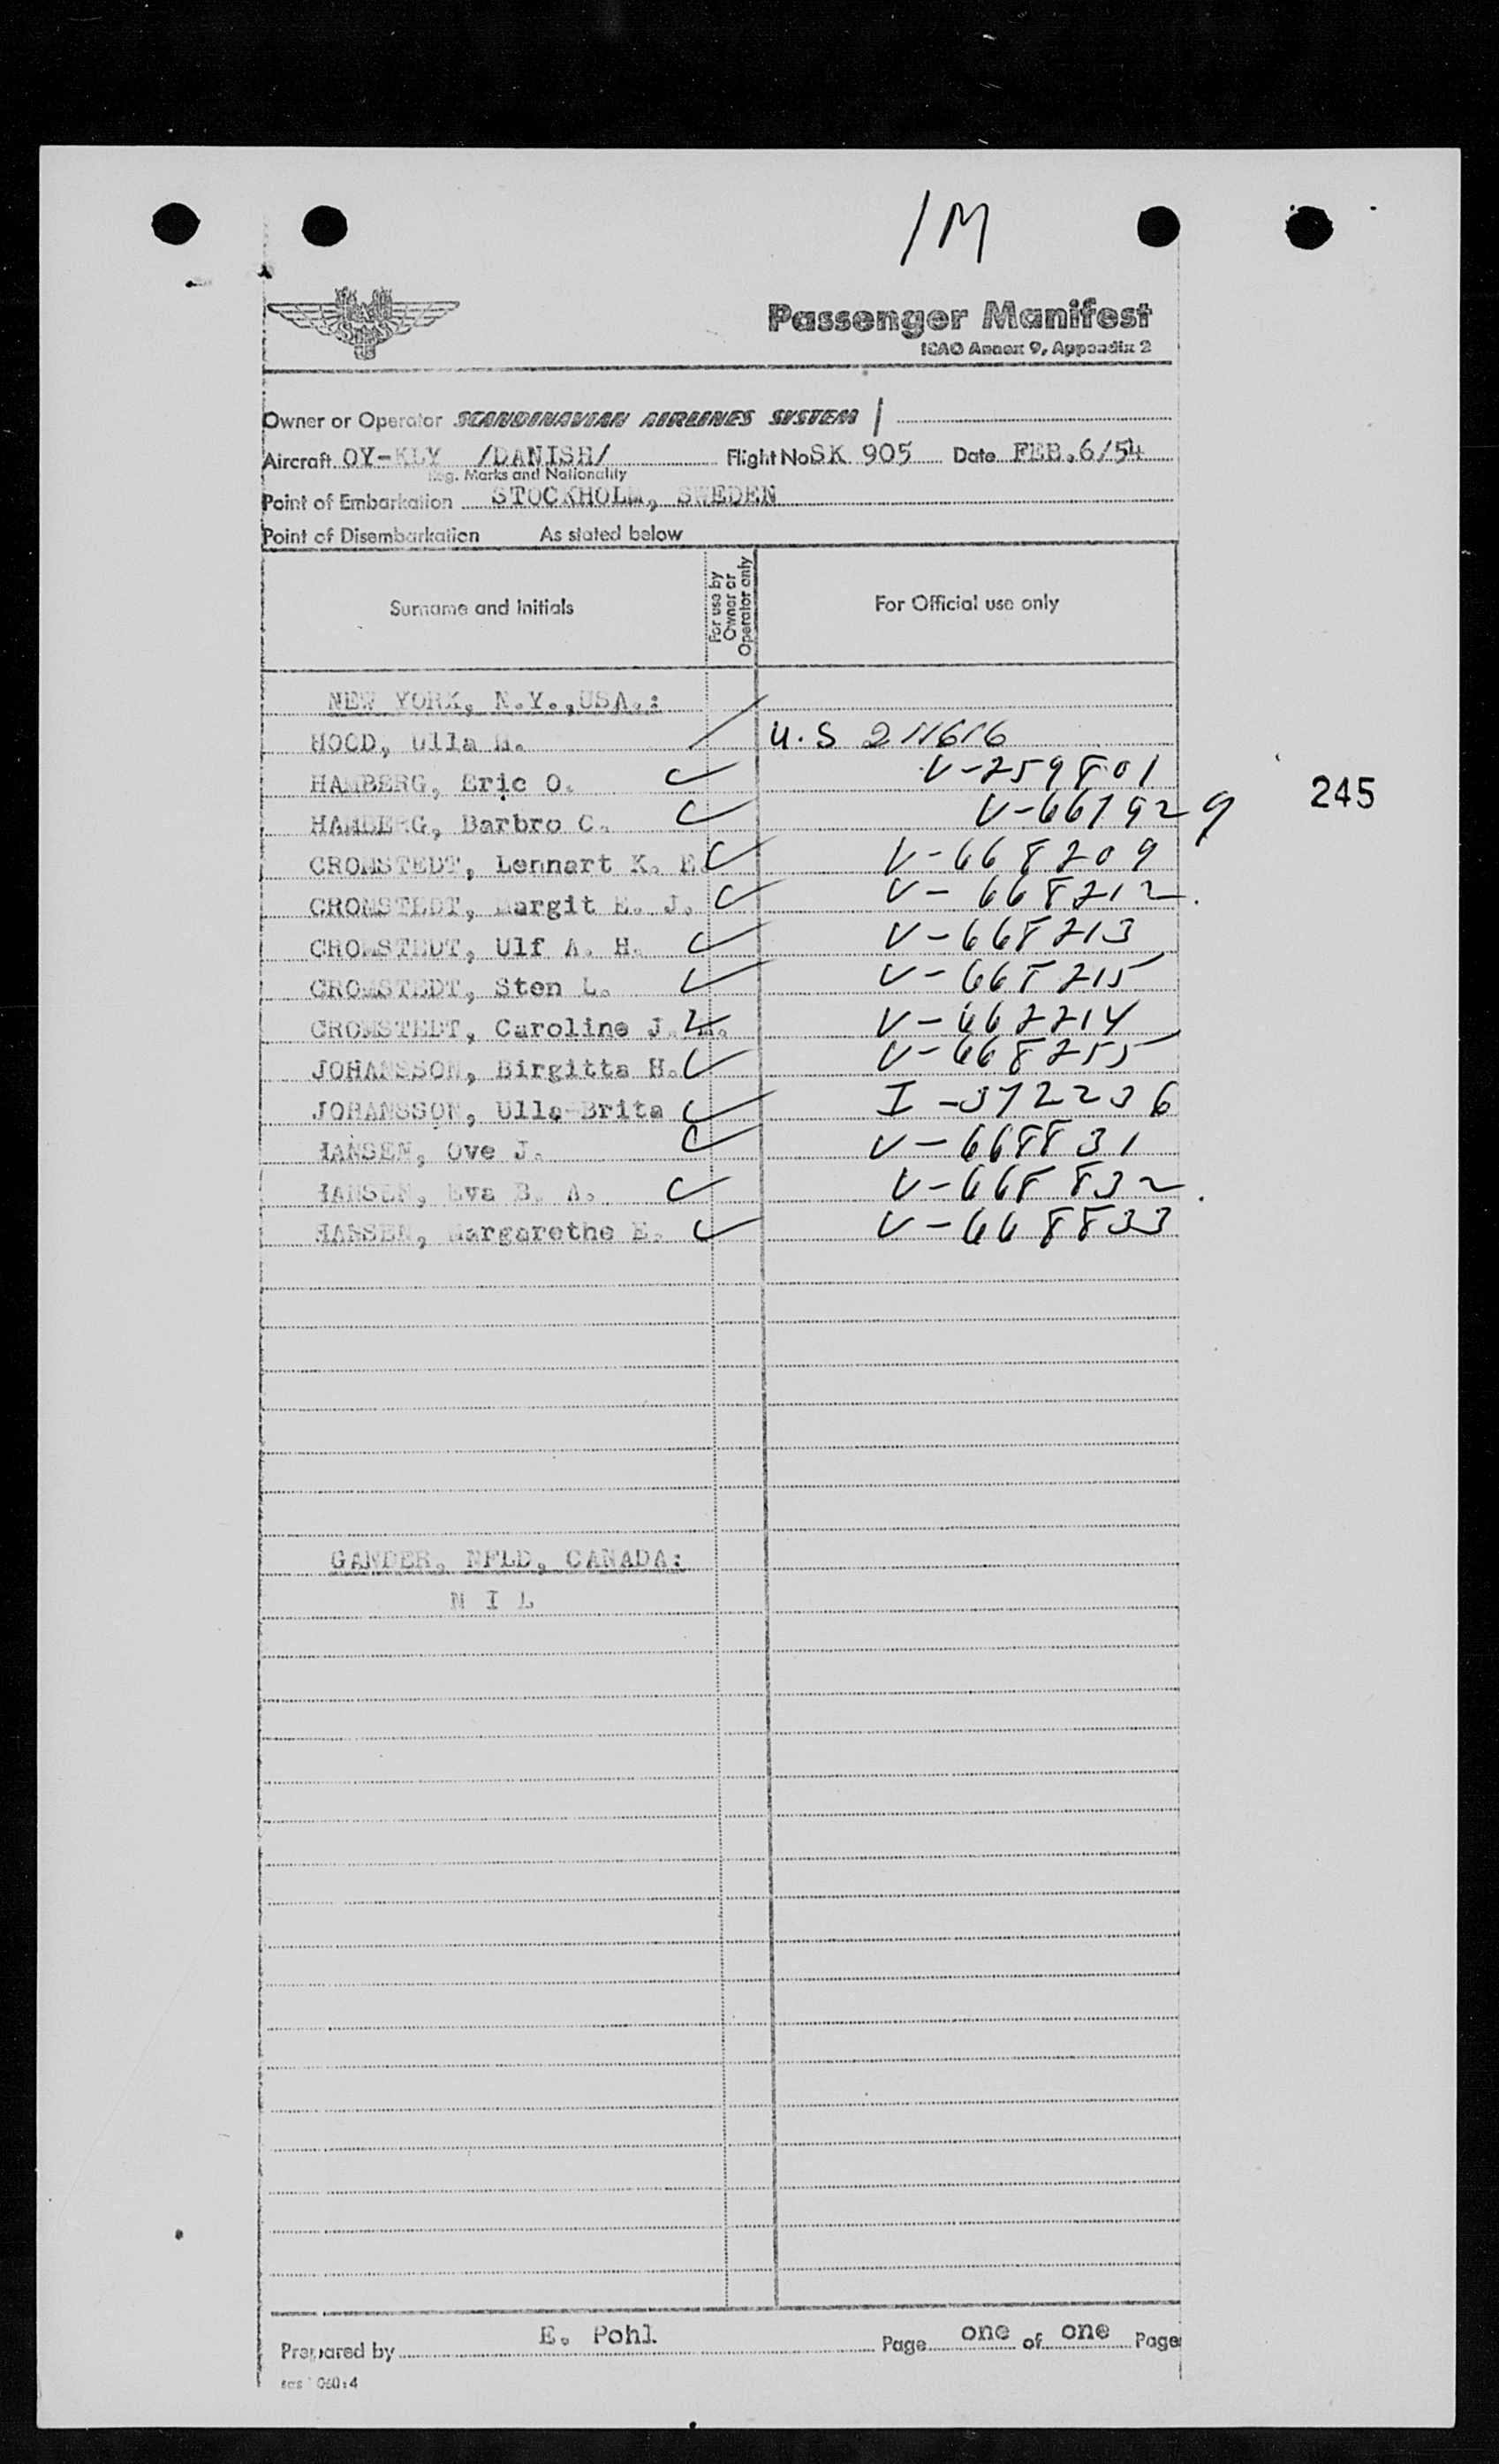 /M
SAS
Passenger Manifest
ICAO Annex 9, Appendix 2
Owner or Operator SCANDINAVIAN AIRLINES SYSTEM /
Aircraft OY-KLY /DANISH/ Flight No SK 905 Date FEB.6/54
Reg. Marks and Nationality
Point of Embarkation STOCKHOLM, SWEDEN
Point of Disembarkation As stated below
Surname and Initials For use by Owner or Operator only For Official use only
NEW YORK, N.Y.,USA.:
HOOD, Ulla H. / U.S 211616
HAMBERG, Eric O. ✓ V-259801
245
HAMBERG, Barbro C. ✓ V-661929
CROMSTEDT, Lennart K. E. ✓ V-668209
CROMSTEDT, Margit E. J. ✓ V-668212.
CROMSTEDT, Ulf A. H. ✓ V-668213
CROMSTEDT, Sten L. ✓ V-668215
CROMSTEDT, Caroline J. ✓ V-662214
JOHANSSON, Birgitta H. ✓ V-668255
JOHANSSON, Ulla-Brita ✓ I-372236
HANSEN, Ove J. ✓ V-668831
HANSEN, Eva B. A. ✓ V-668832.
HANSEN, Margarethe E. ✓ V-668833
GANDER, NFLD, CANADA:
N I L
Prepared by E. Pohl Page one of one Page